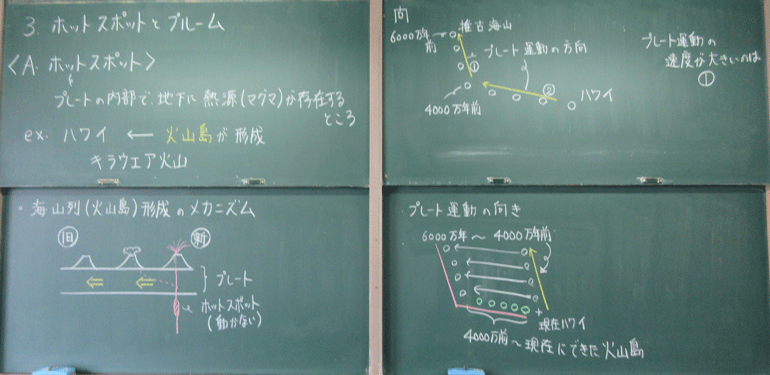 3. ホットスポットとプルーム
<A. ホットスポット>
プレートの内部で、地下に熱源(マグマ)が存在する
ところ
ex. ハワイ ← 火山島が形成
キラウェア火山
・海山列(火山島)形成のメカニズム
旧
新
プレート
ホットスポット
(動かない)
向
推古海山
6000万年
前
①
プレート運動の方向
4000万年前
②
ハワイ
プレート運動の
速度が大きいのは
①
プレート運動の向き
6000万年〜4000万年前
現在ハワイ
4000万前〜現在にできた火山島